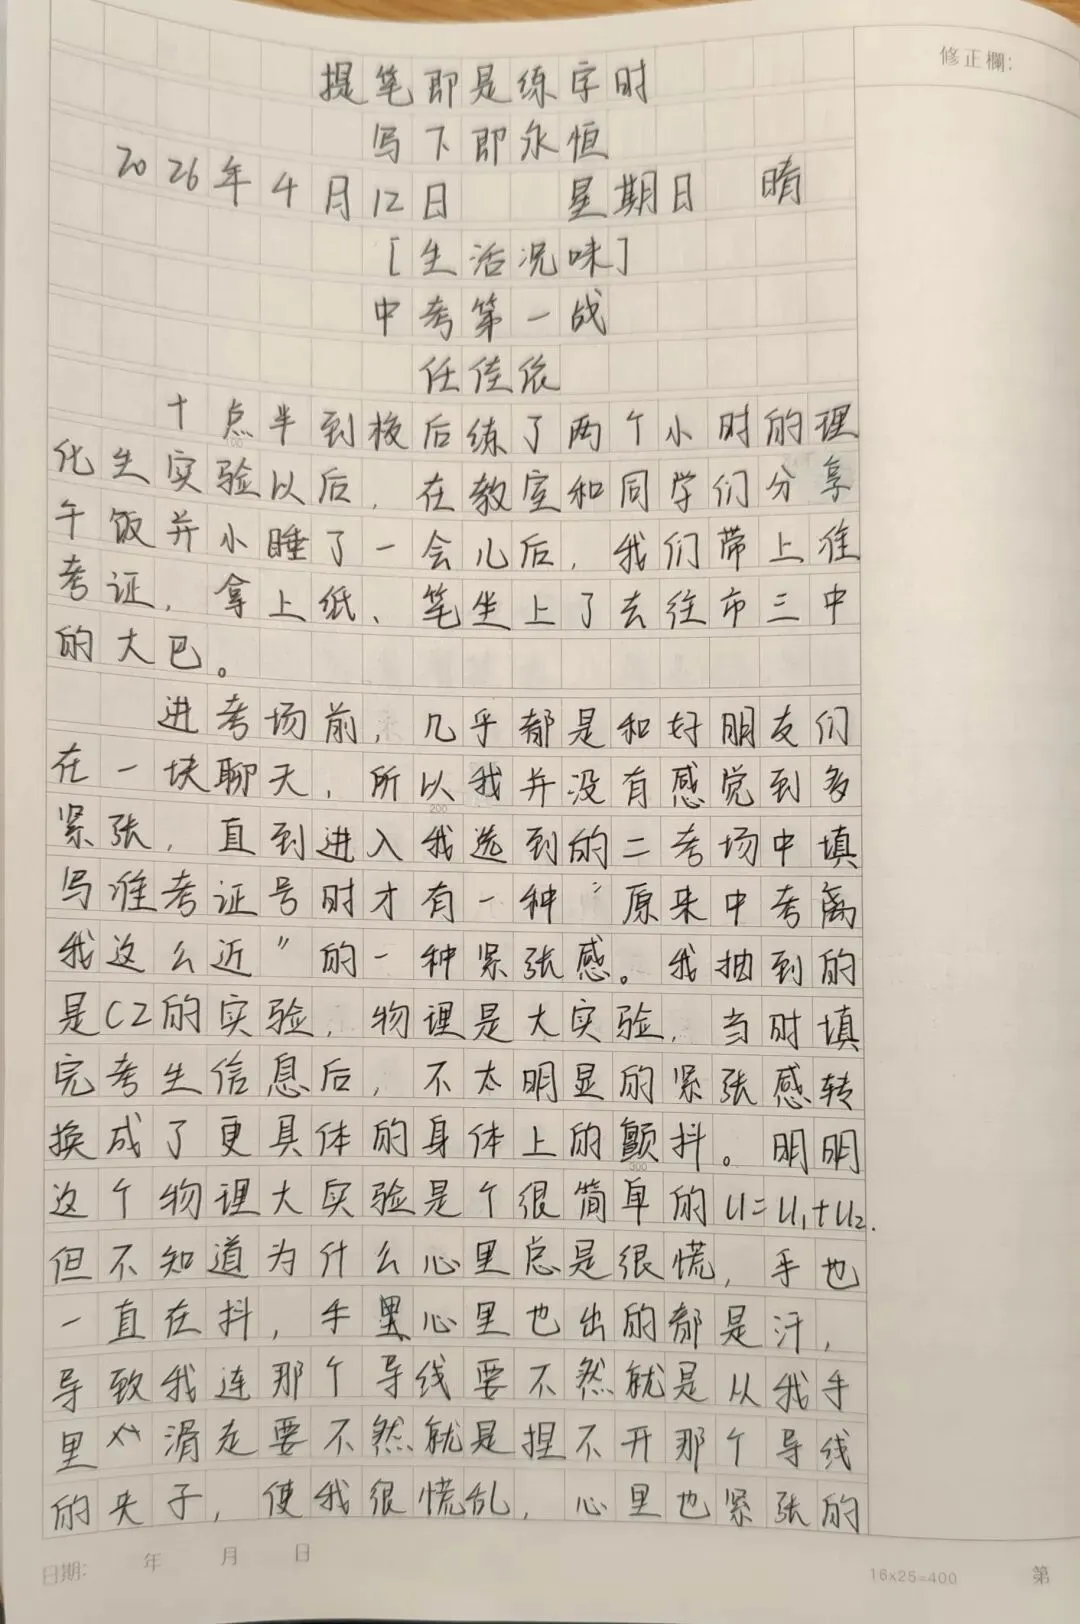 修正欄:
提笔即是练字时
写下即永恒
2026年4月12日 星期日 晴
[生活况味]
中考第一战
任佳依
十点半到校后练了两个小时的理
化生实验以后，在教室和同学们分享
午饭并小睡了一会儿后，我们带上准
考证，拿上纸、笔坐上了去往市三中
的大巴。
进考场前，几乎都是和好朋友们
在一块聊天，所以我并没有感觉到多
紧张，直到进入我选到的二考场中填
写准考证号时才有一种“原来中考离
我这么近”的一种紧张感。我抽到的
是C2的实验，物理是大实验，当时填
完考生信息后，不太明显的紧张感转
换成了更具体的身体上的颤抖。明明
这个物理大实验是个很简单的U=U₁+U₂.
但不知道为什么心里总是很慌，手也
一直在抖，手里心里也出的都是汗，
导致我连那个导线要不然就是从我手
里滑走要不然就是捏不开那个导线
的夹子，使我很慌乱，心里也紧张的
日期: 年 月 日
16x25=400
第
100
200
300